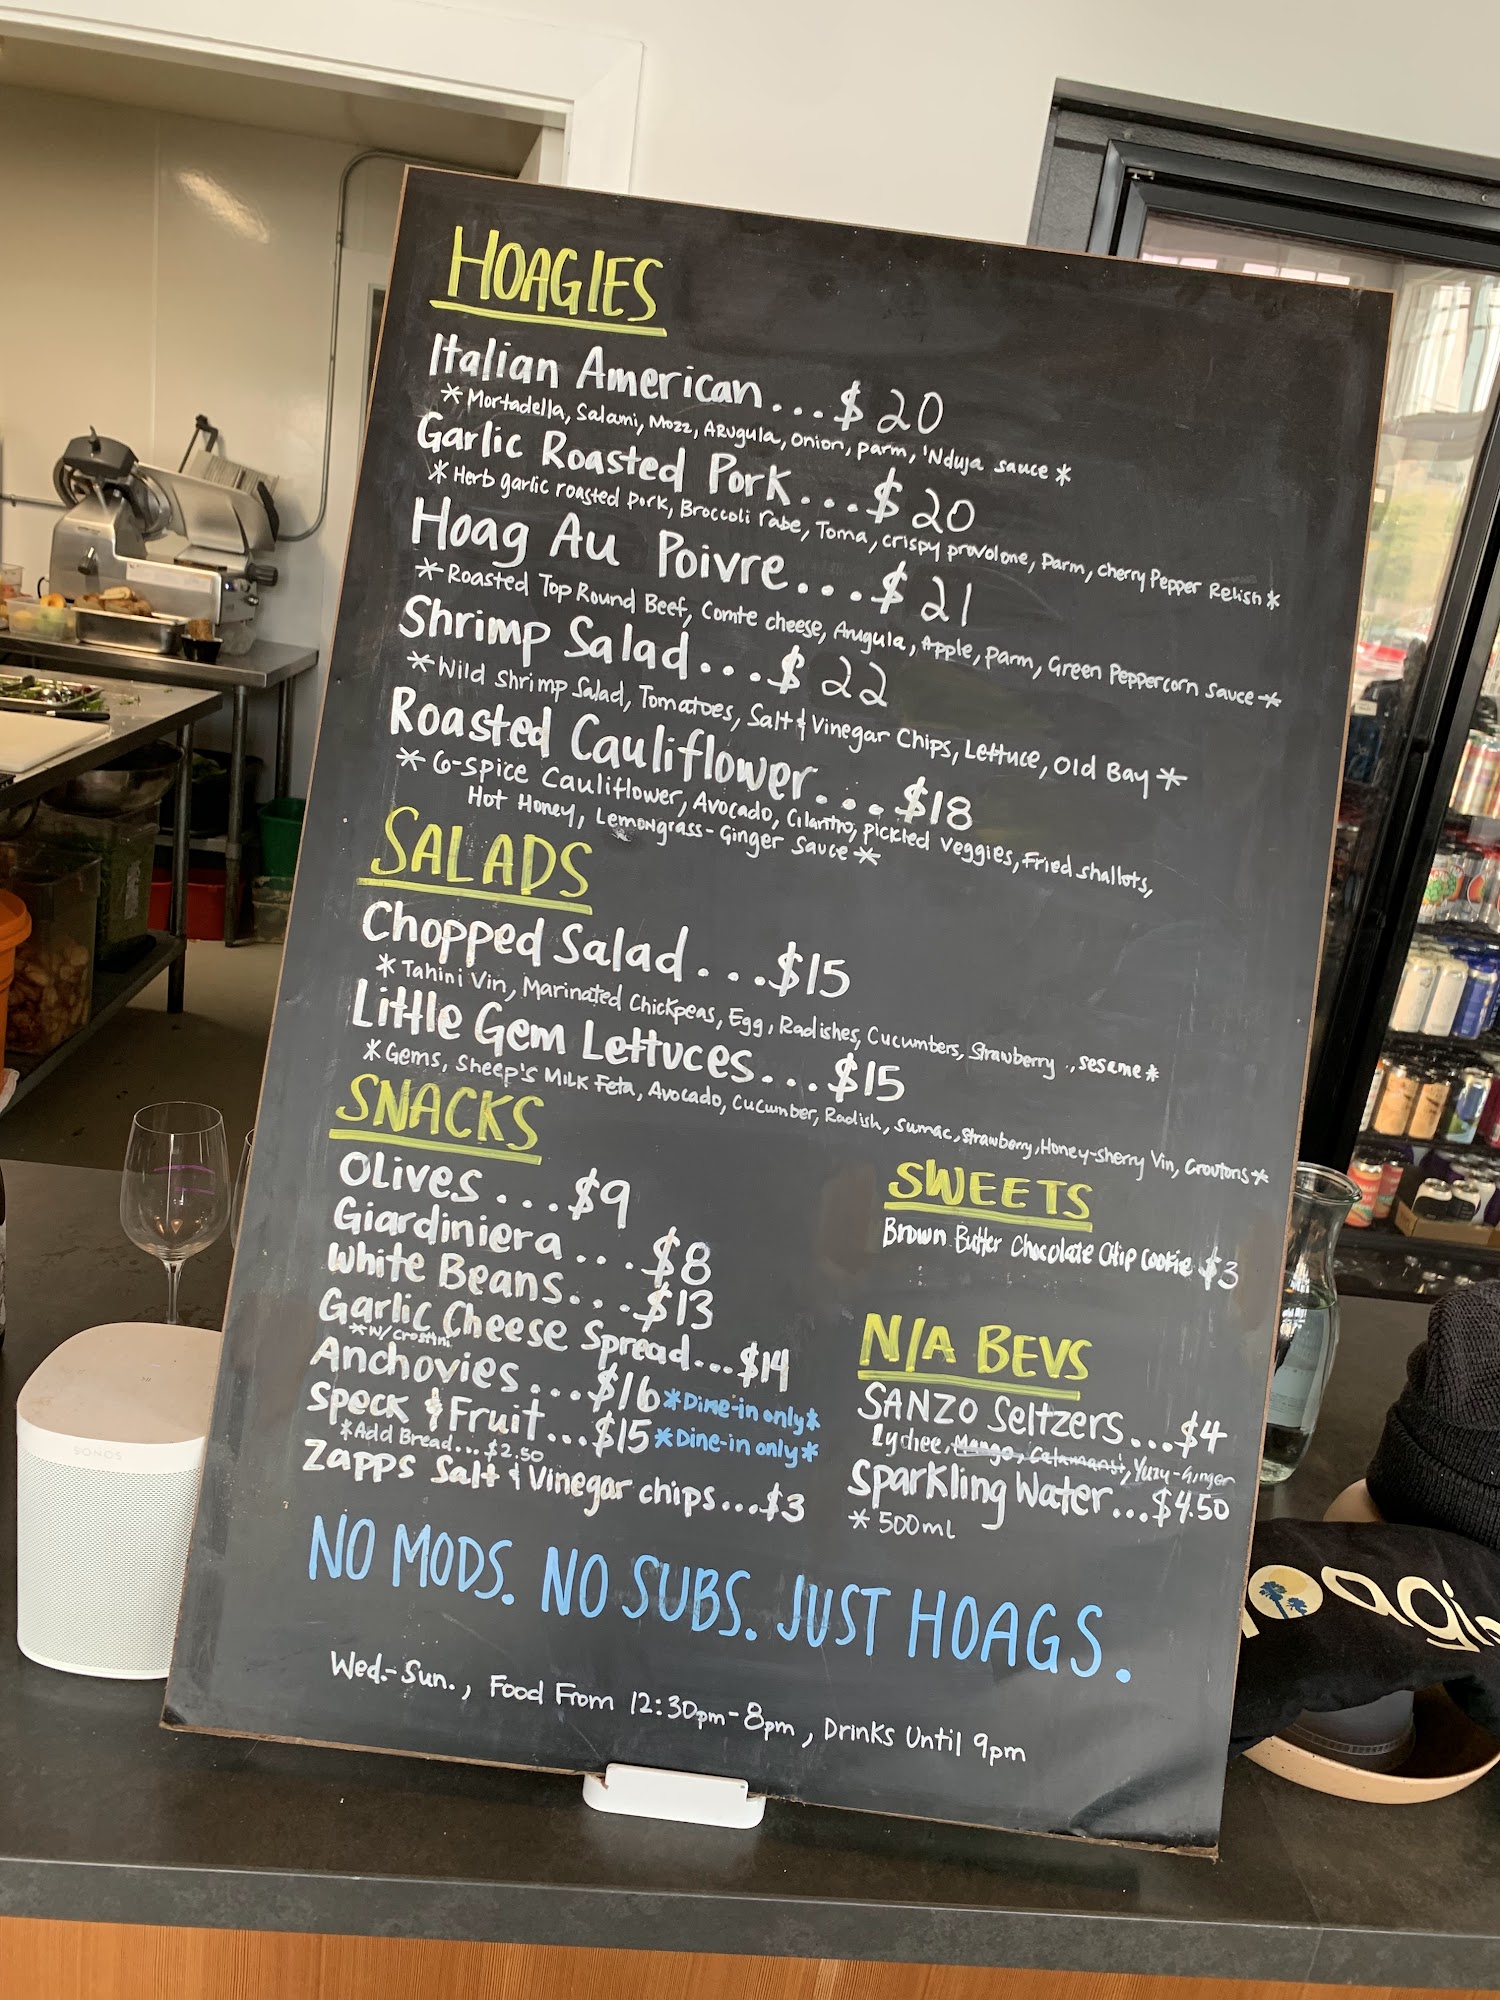 HOAGIES
Italian American...$20
*Mortadella, Salami, Mozz, Arugula, onion, parm, 'Nduja sauce*
Garlic Roasted Pork...$20
*Herb garlic roasted pork, Broccoli rabe, Toma, crispy provolone, parm, cherry Pepper Relish*
Hoag Au Poivre...$21
*Roasted Top Round Beef, Comte cheese, Arugula, Apple, parm, Green Peppercorn sauce*
Shrimp Salad...$22
*Wild Shrimp Salad, Tomatoes, Salt & Vinegar Chips, Lettuce, Old Bay*
Roasted Cauliflower...$18
*6-Spice Cauliflower, Avocado, Cilantro, pickled veggies, Fried shallots,
Hot Honey, Lemongrass-Ginger Sauce*
SALADS
Chopped Salad...$15
*Tahini Vin, Marinated Chickpeas, Egg, Radishes, Cucumbers, Strawberry, sesame*
Little Gem Lettuces...$15
*Gems, Sheep's Milk Feta, Avocado, Cucumber, Radish, Sumac, Strawberry, Honey-sherry Vin, Croutons*
SNACKS
Olives...$9
Giardiniera...$8
White Beans...$13
Garlic Cheese Spread...$14
*w/ crostini
Anchovies...$16 *Dine-in only*
Speck & Fruit...$15 *Dine-in only*
*Add Bread...$2.50
Zapps Salt & Vinegar chips...$3
SWEETS
Brown Butter Chocolate Chip Cookie $3
N/A BEVS
SANZO Seltzers...$4
Lychee, Mango, Calamansi, Yuzu-Ginger
Sparkling Water...$4.50
*500mL
NO MODS. NO SUBS. JUST HOAGS.
Wed.-Sun., Food From 12:30pm-8pm, Drinks Until 9pm
SONOS